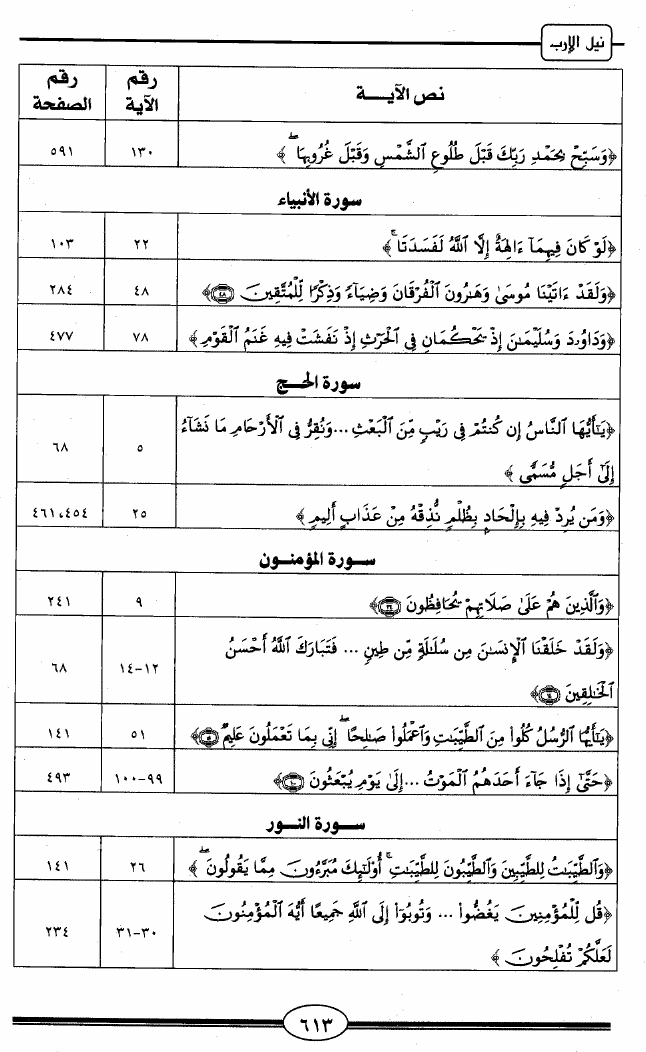 نيل الإرب
نص الآيــــة رقم الآية رقم الصفحة
﴿وَسَبِّحْ بِحَمْدِ رَبِّكَ قَبْلَ طُلُوعِ الشَّمْسِ وَقَبْلَ غُرُوبِهَا ۖ ﴾ ١٣٠ ٥٩١
سورة الأنبياء
﴿لَوْ كَانَ فِيهِمَآ ءَالِهَةٌ إِلَّا ٱللَّهُ لَفَسَدَتَا ۚ ﴾ ٢٢ ١٠٣
﴿وَلَقَدْ ءَاتَيْنَا مُوسَىٰ وَهَٰرُونَ ٱلْفُرْقَانَ وَضِيَآءً وَذِكْرًا لِّلْمُتَّقِينَ ٤٨﴾ ٤٨ ٢٨٤
﴿وَدَاوُۥدَ وَسُلَيْمَٰنَ إِذْ يَحْكُمَانِ فِي ٱلْحَرْثِ إِذْ نَفَشَتْ فِيهِ غَنَمُ ٱلْقَوْمِ ﴾ ٧٨ ٤٧٧
سورة الحـج
﴿يَٰٓأَيُّهَا ٱلنَّاسُ إِن كُنتُمْ فِي رَيْبٍ مِّنَ ٱلْبَعْثِ ...وَنُقِرُّ فِي ٱلْأَرْحَامِ مَا نَشَآءُ
إِلَىٰٓ أَجَلٍ مُّسَمًّى ﴾ ٥ ٦٨
﴿وَمَن يُرِدْ فِيهِ بِإِلْحَادٍۭ بِظُلْمٍ نُّذِقْهُ مِنْ عَذَابٍ أَلِيمٍ ﴾ ٢٥ ٤٥٤،٤٦١
سـورة المؤمنـون
﴿وَٱلَّذِينَ هُمْ عَلَىٰ صَلَاتِهِمْ يُحَافِظُونَ ٣٤﴾ ٩ ٢٤١
﴿وَلَقَدْ خَلَقْنَا ٱلْإِنسَٰنَ مِن سُلَٰلَةٍ مِّن طِينٍ ... فَتَبَارَكَ ٱللَّهُ أَحْسَنُ
ٱلْخَٰلِقِينَ ١٤﴾ ١٢-١٤ ٦٨
﴿يَٰٓأَيُّهَا ٱلرُّسُلُ كُلُوا۟ مِنَ ٱلطَّيِّبَٰتِ وَٱعْمَلُوا۟ صَٰلِحًا ۖ إِنِّي بِمَا تَعْمَلُونَ عَلِيمٌ ٥١﴾ ٥١ ١٤١
﴿حَتَّىٰٓ إِذَا جَآءَ أَحَدَهُمُ ٱلْمَوْتُ ...إِلَىٰ يَوْمِ يُبْعَثُونَ ١٠٠﴾ ٩٩-١٠٠ ٤٩٣
سـورة النـور
﴿وَٱلطَّيِّبَٰتُ لِلطَّيِّبِينَ وَٱلطَّيِّبُونَ لِلطَّيِّبَٰتِ ۚ أُو۟لَٰٓئِكَ مُبَرَّءُونَ مِمَّا يَقُولُونَ ۖ ﴾ ٢٦ ١٤١
﴿قُل لِّلْمُؤْمِنِينَ يَغُضُّوا۟ ... وَتُوبُوٓا۟ إِلَى ٱللَّهِ جَمِيعًا أَيُّهَ ٱلْمُؤْمِنُونَ
لَعَلَّكُمْ تُفْلِحُونَ ﴾ ٣٠-٣١ ٢٣٤
٦١٣